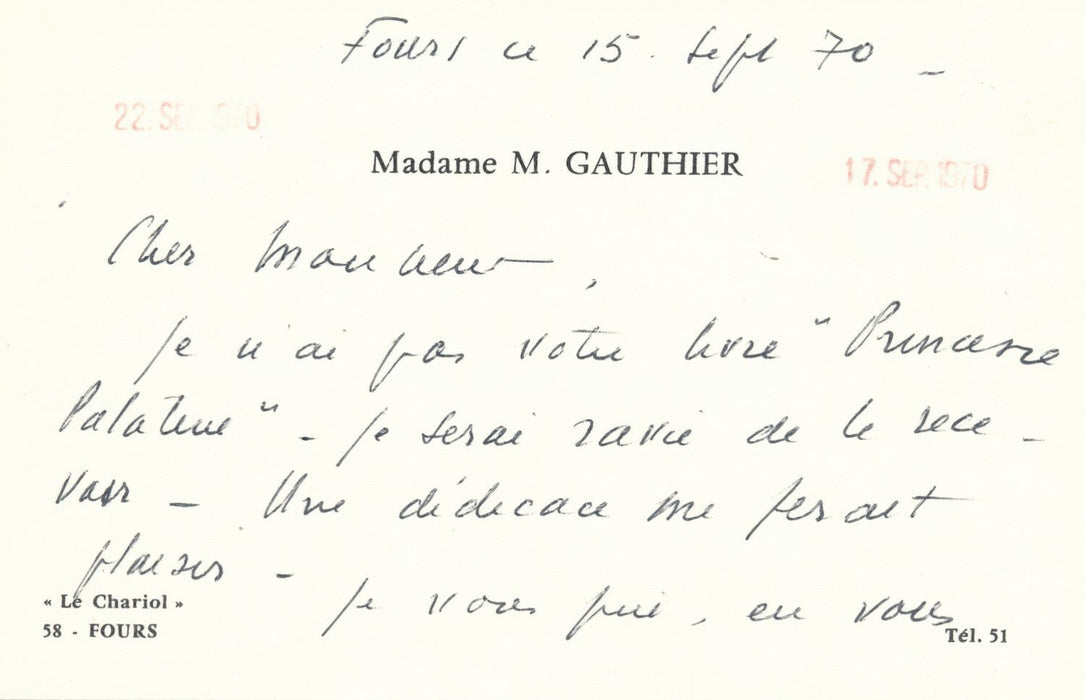 Fours ce 15. Sept 70 _
22. SEP. 1970
Madame M. GAUTHIER
17. SEP. 1970
Cher Monsieur,
Je n'ai pas votre livre "Princesse
Palatine" - Je serai ravie de le rece -
voir - Une dédicace me ferait
plaisir - Je vous prie, en vous
« Le Chariol »
58 - FOURS
Tél. 51